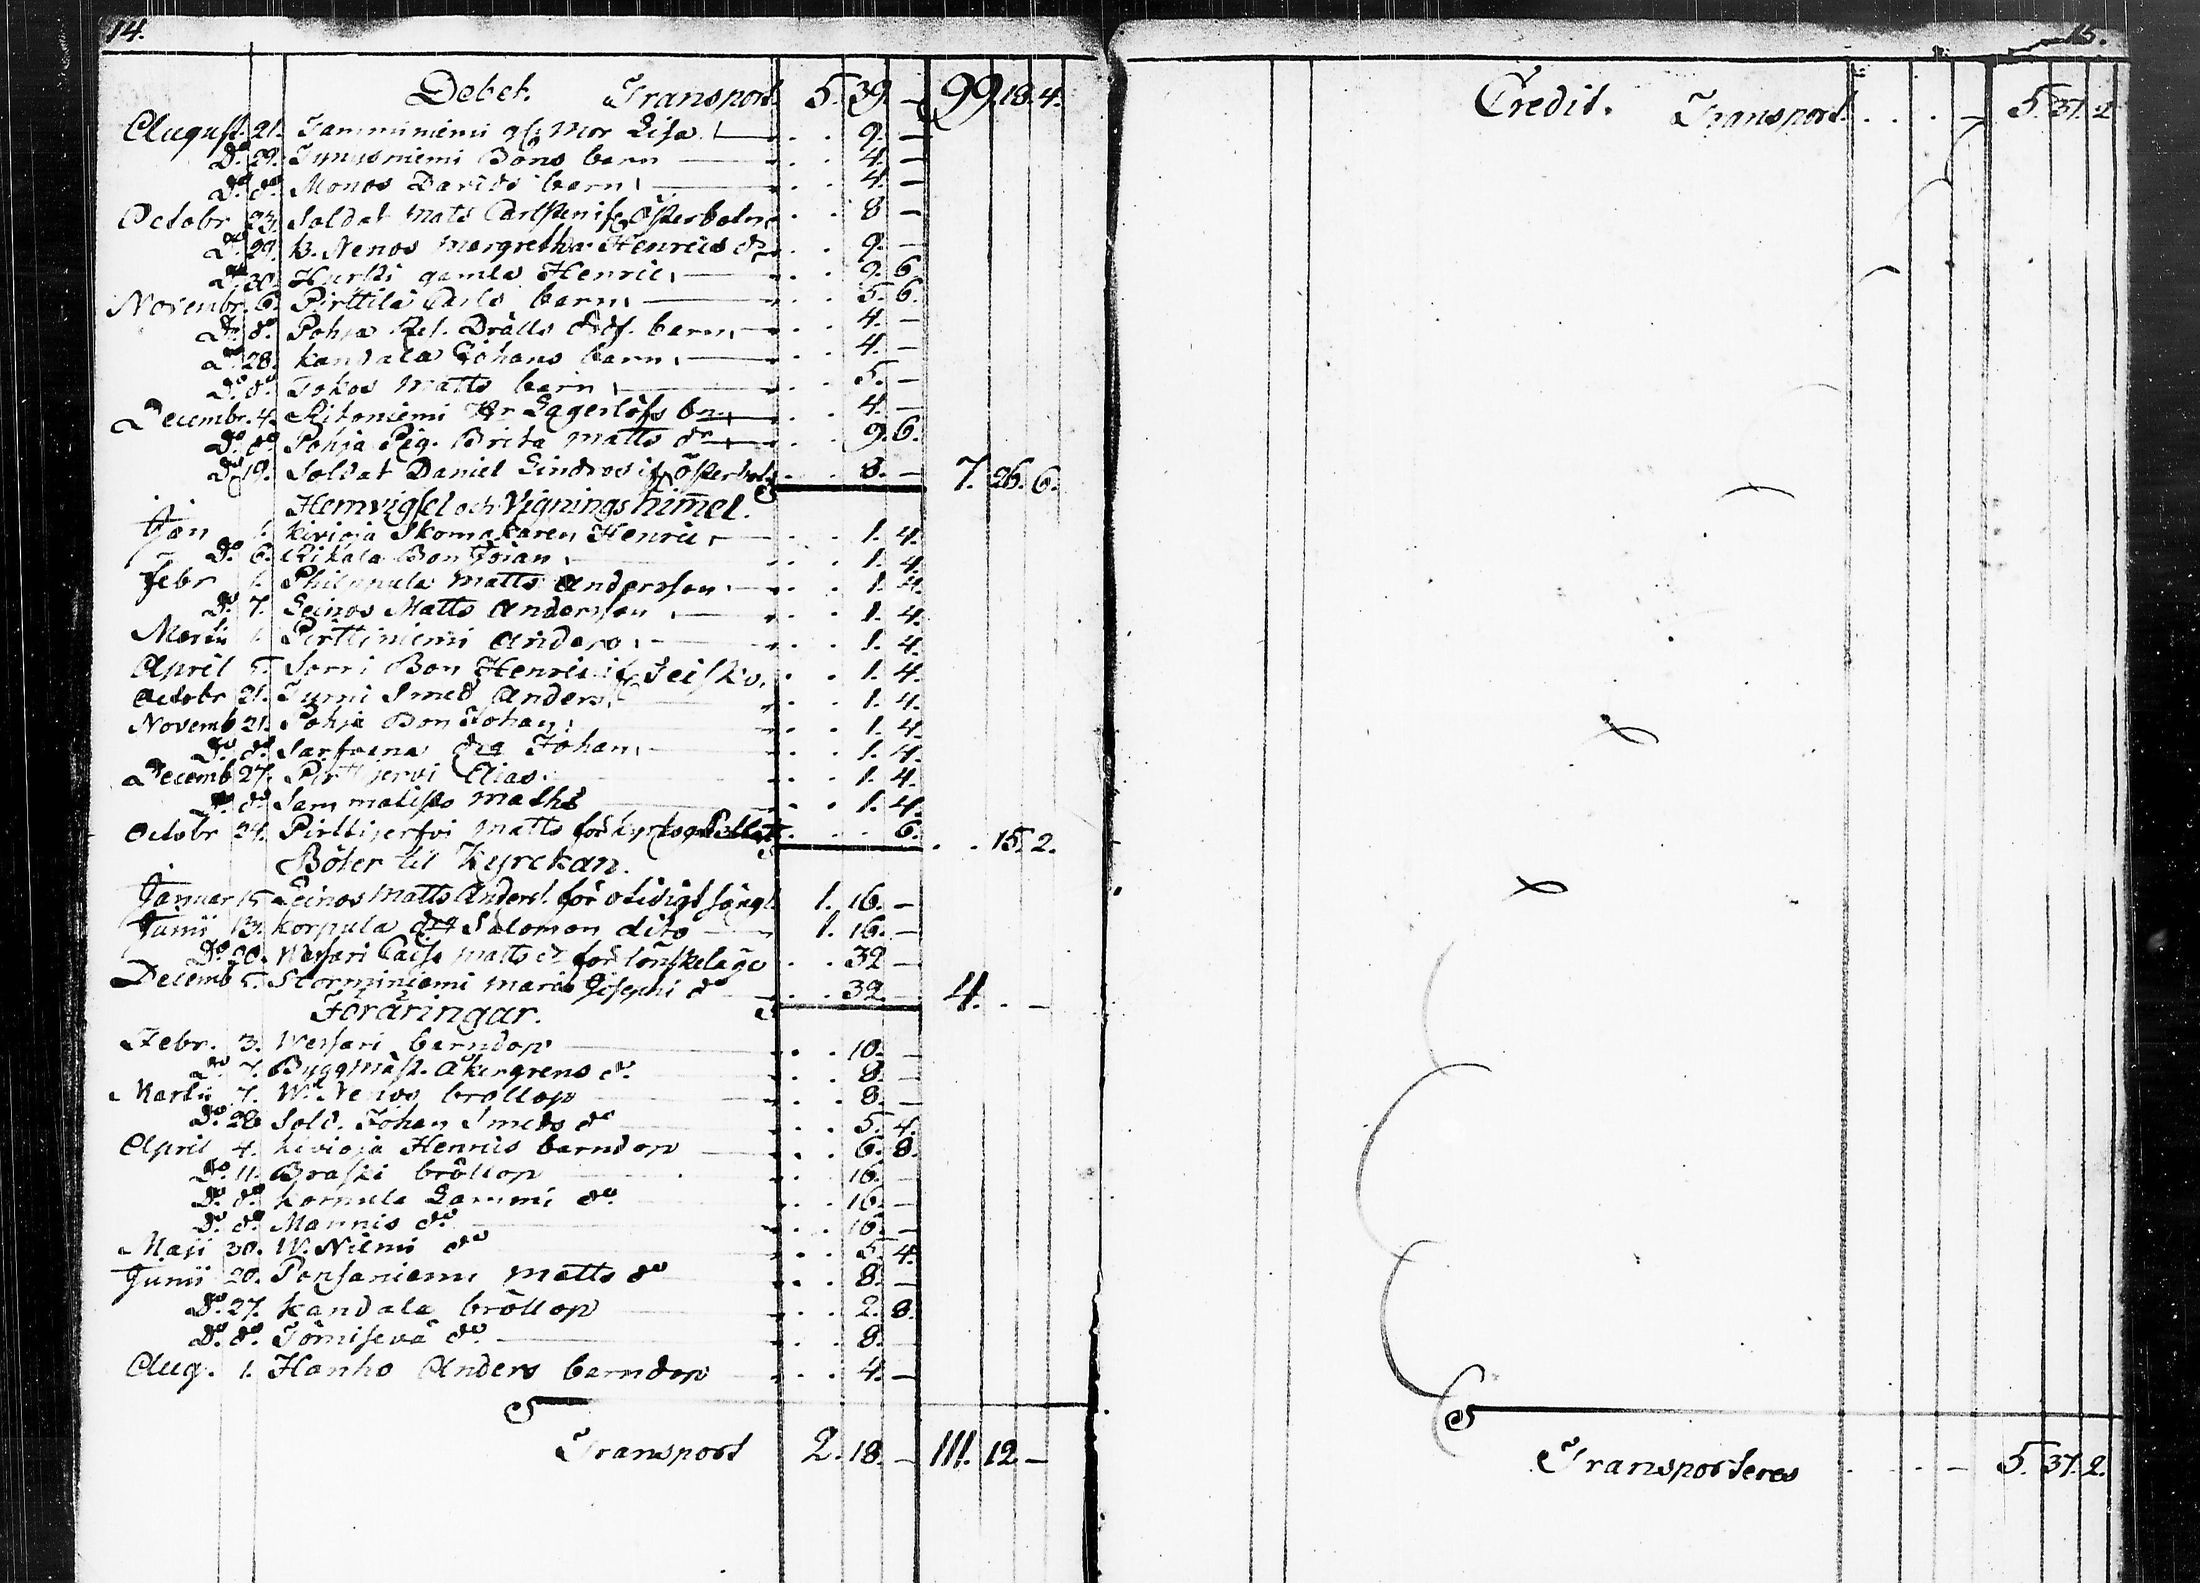 14.
Debet. Transport 5. 39. — 99. 18. 4.
August. 21. Tamminiemi gl: Mor Lisa . . 9. —
Do. 29. Tynysniemi Bons barn . . 4. —
Do. do. Monos Davids barn . . 4. —
Octobr. 23. Soldat Mats Carlsten if: Österbotn . . 8 —
Do. 29. k. Nenos Margretha Henrics dr . . 9. —
Do. 30. Hurski gamla Henric . . 9. 6.
Novembr. 6. Pirttilä Carls barn . . 5. 6.
Do. do. Pohja barn . . 4. —
Do. 28. Kandala Johans barn . . 4. —
Do. do. Jokos Matts barn . . 5. —
Decembr. 4. Ritoniemi Hr Lagerlöfs bn . . 4. —
Do. do. Pohja Pig. Brita Matts dr . . 9. 6.
Do. 19. Soldat Daniel Lindros if: Österbotn . . 8. — 7. 26. 6.
Hemvigsel och Vignings himel.
Jan 1. Kivioja Skomakaren Henric . . 1. 4.
Do. 6. Rikala Bon Johan . . 1. 4.
Febr 1. Philppula Matts Andersson . . 1. 4.
Do. 7. Leinos Matts Andersson . . 1. 4.
Martii 1. Pirttiniemi Anders . . 1. 4.
April 5. Sorri Bon Henric if: Teisko. . . 1. 4.
Octobr 21. Tumi Smed Anders . . 1. 4.
Novemb 21. Pohja Bon Johan . . 1. 4.
Do. do. Sarfvena Johan . . 1. 4.
Decemb 27. Pirttijervi Elias . . 1. 4.
Do. do. Sammatisto Matts . . 1. 4.
Octobr 24. Pirttijerfvi Matts för . . . 6. . . 15. 2.
Böter til Kyrckan.
Januar 15. Leinos Matts Anders. för otidigt sängl. 1. 16. —
Junii 13. Korpula Salomon dito 1. 16. —
Do. 20. Wessari Caisa Matts dr för lönskeläge . . 32 —
Decemb 5. Storminiemi Maria Josephi do . . 32. — 4. . —
Föräringar.
Febr. 3. Wessari barndop . . 10. —
Do. 7. Byggmäst. Åkergrens do. . . 8. —
Martii 7. W. Nenos bröllop . . 8. —
Do. 28 Sold. Johan Smeds do . . 5. 4.
April 4. Kivioja Henrics barndop . . 6. 8.
Do. 11. Braski bröllop . . 16. —
Do. do. Kornula Lammi do . . 16. —
Do. do. Mannis do . . 16. —
Maji 30. W. Niemi do . . 5. 4.
Junii 20. Ponsaniemi Matts do . . 8. —
Do. 27. Kandala bröllop . . 2. 8.
Do. do. Tömisevä do. . . 8. —
Aug. 1. Hanho Anders barndop . . 4. —
Transport 2. 18. — 111. 12 —
15.
Credit. Transport . . . — 5. 37. 2
Transporteres . . . — 5. 37. 2.